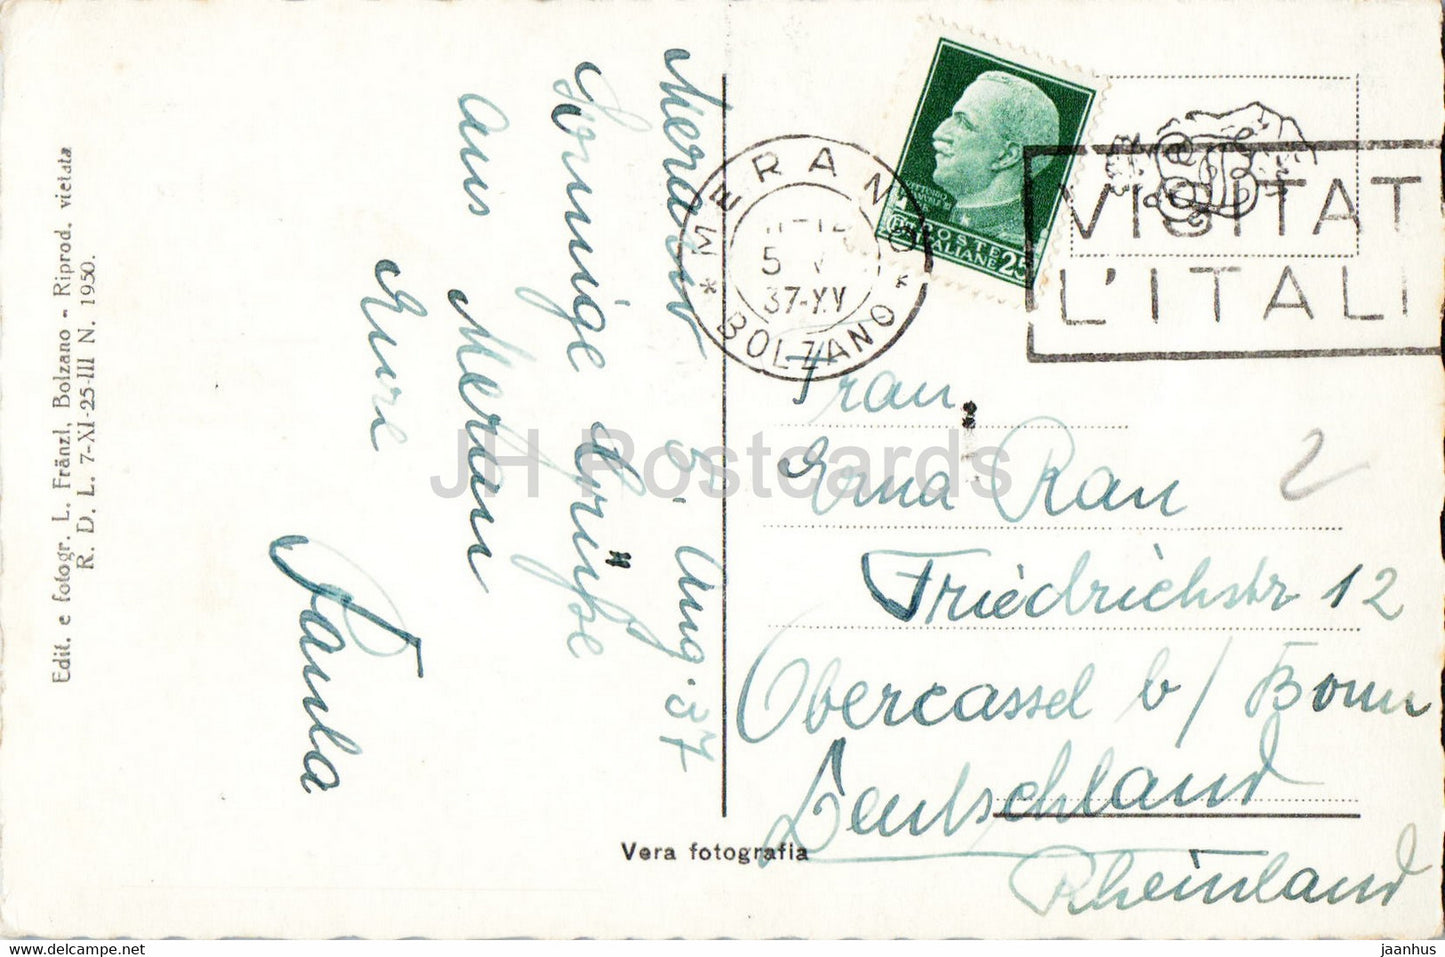 Edit. e fotogr. L. Fränzl, Bolzano - Riprod. vietata
R. D. L. 7-XI-25-III N. 1950.
Merano 5. Aug. 37
Sonnige Grüße
aus Meran
Eure
Paula
MERANO
5
37-XV
* BOLZANO *
POSTE
ITALIANE
25
VISITAT
L'ITALI
Frau
Erna Rau
Friedrichstr 12
Obercassel b/ Bonn
Deutschland
Rheinland
2
Vera fotografia
JH Postcards
www.delcampe.net
jaanhus